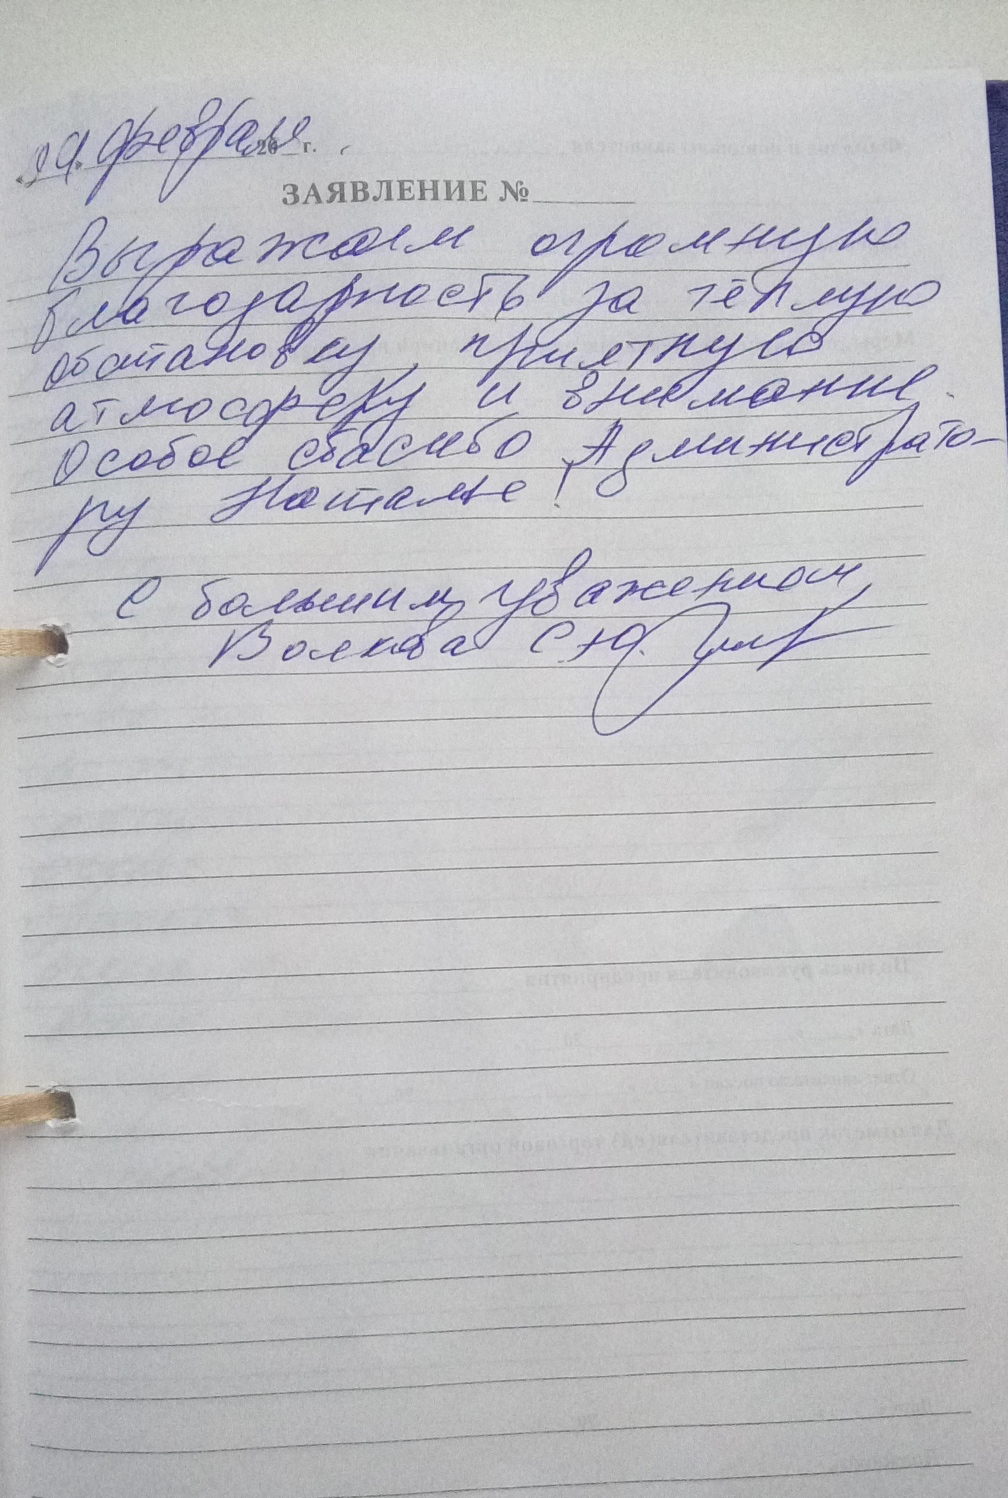 февраля 20 г.
ЗАЯВЛЕНИЕ №
Выражаем огромную
благодарность за тёплую
обстановку, приятную
атмосферу и внимание.
Особое спасибо Администрато-
ру Наталье!
С большим уважением,
Волкова С.Ю.